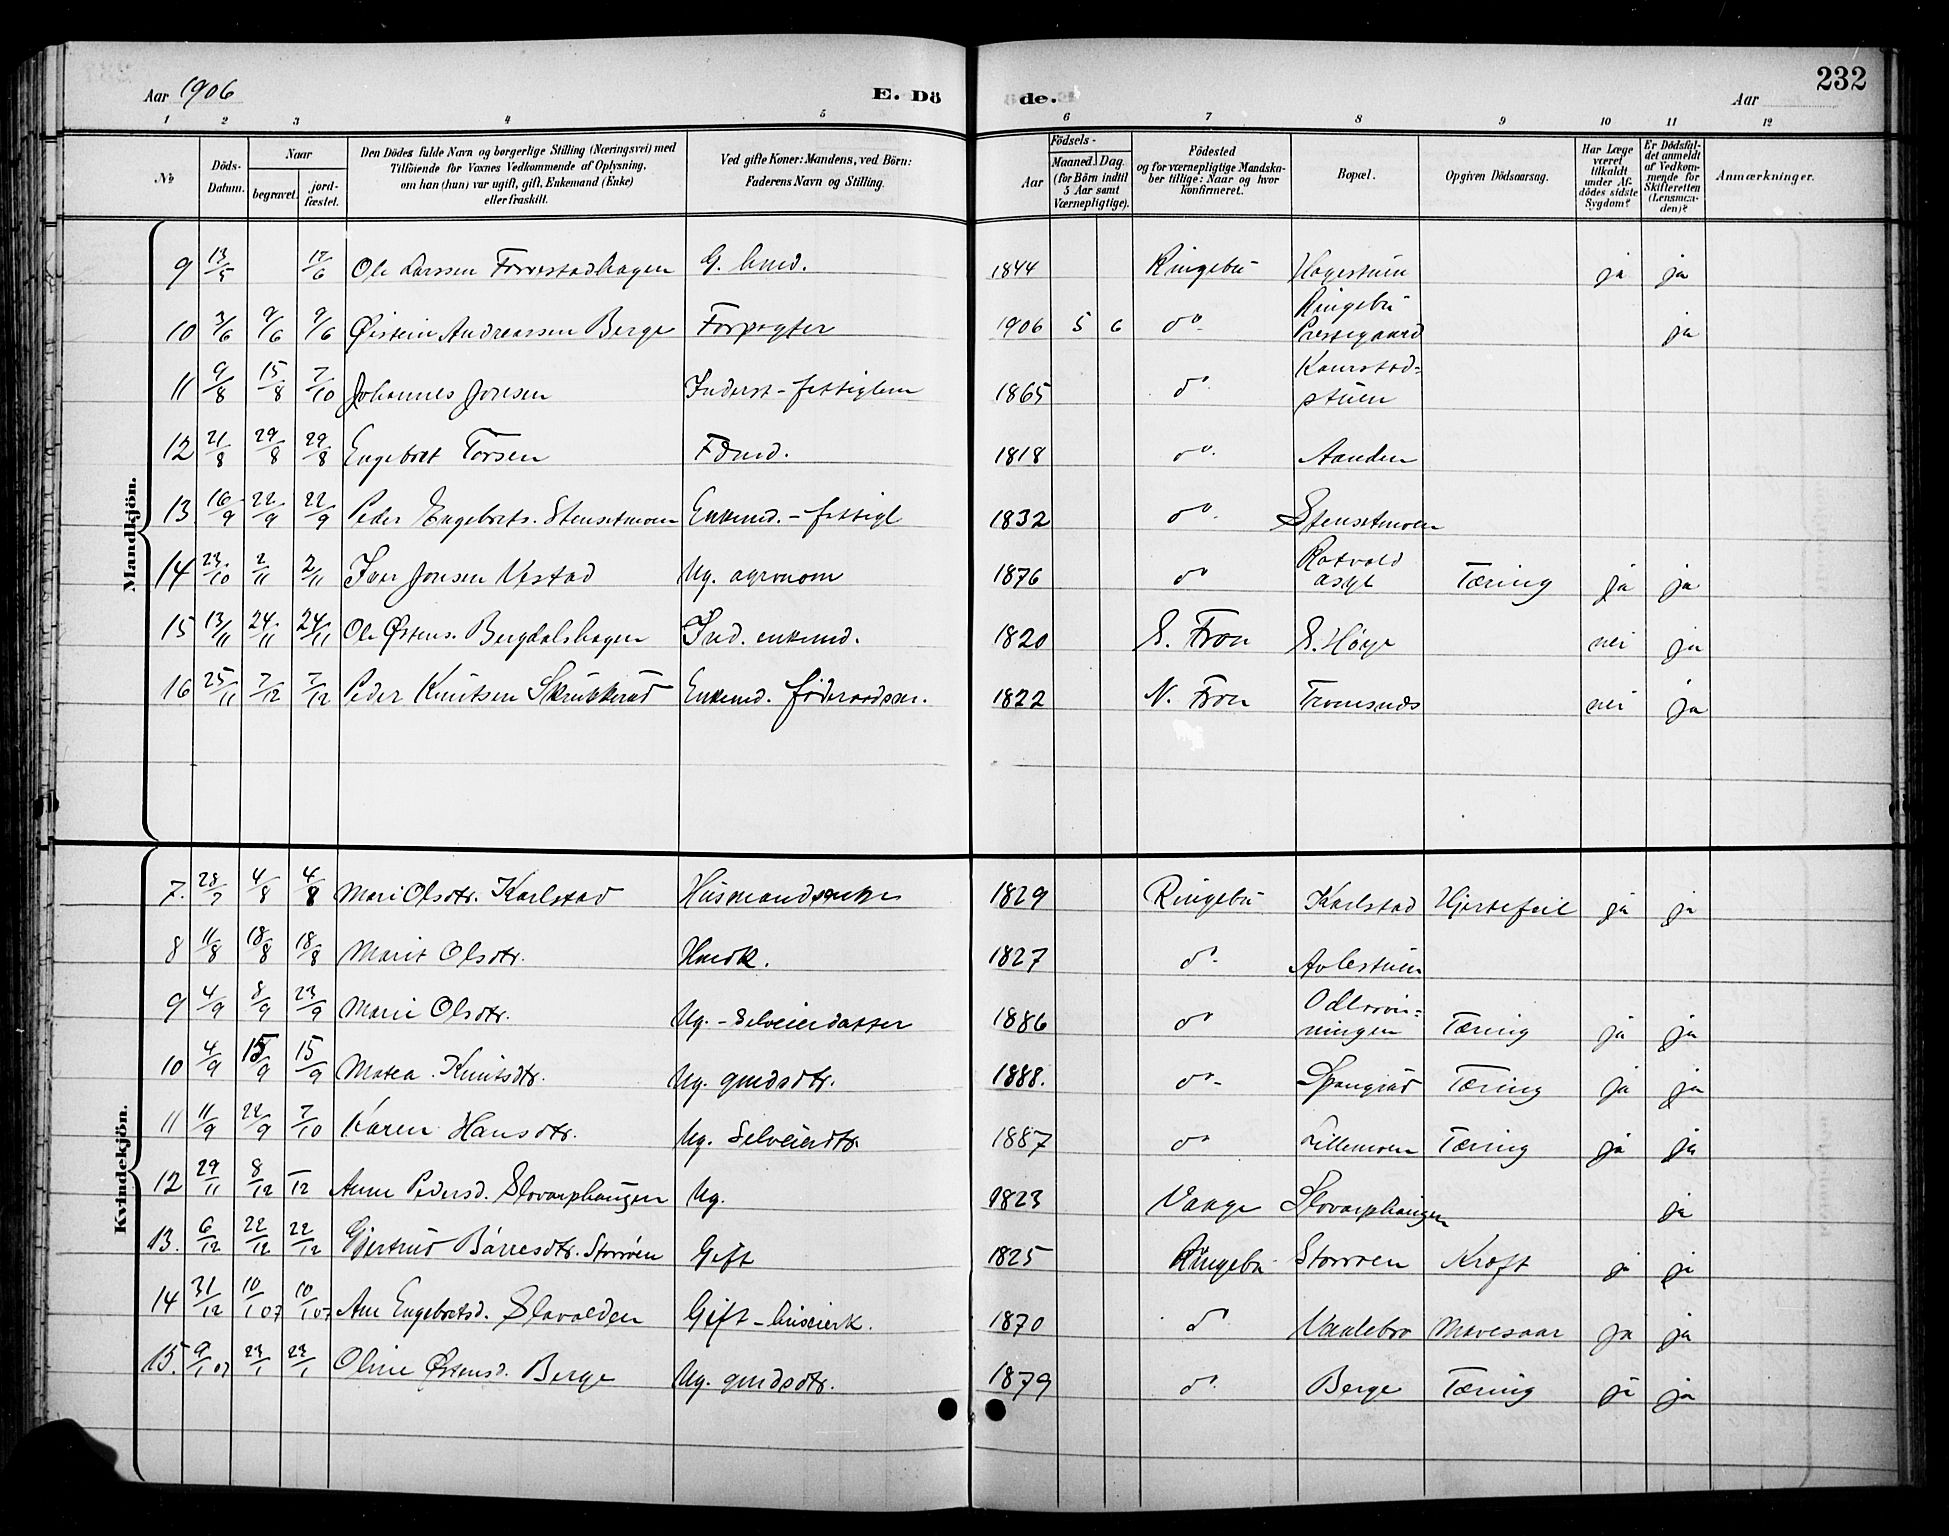 Aar 1906 E. Dö de. Aar 232
1 2 3 4 5 6 7 8 9 10 11 12
№
Döds-Datum.
Naar
begravet.
jord-fæstet.
Den Dödes fulde Navn og borgerlige Stilling (Næringsvei) med
Tilföiende for Voxnes Vedkommende af Oplysning,
om han (hun) var ugift, gift, Enkemand (Enke)
eller fraskilt.
Ved gifte Koner: Mandens, ved Börn:
Faderens Navn og Stilling.
Födsels-
Aar
Maaned. Dag.
(for Börn indtil
5 Aar samt
Værnepligtige).
Födested
og for værnepligtige Mandska-
ber tillige: Naar og hvor
konfirmeret.
Bopæl.
Opgiven Dödsaarsag.
Har Læge
været
tilkaldt
under Af-
dödes sidste
Sygdom?
Er Dödsfal-
det anmeldt
af Vedkom-
mende for
Skifteretten
(Lensman-
den)?
Anmærkninger.
Mandkjön.
9 13/5 17/6 Ole Larssen Forrestadhagen G. hmd. 1844 Ringebu Hagestuen ja ja
10 3/6 9/6 9/6 Øistein Andreassen Berge Forpagter 1906 5 6 do Ringebu Prestegaard ja
11 9/8 15/8 7/10 Johannes Jonsen Inderst - fattiglem 1865 do stuen
12 21/8 29/8 29/8 Engebret Torsen 1818 do. Aanden
13. 16/9 22/9 22/9 Peder Engebrets. Stensetmoen Enkemd. - fattigl 1832 do. Stensetmoen
14 23/10 2/11 2/11 Iver Jonsen Vestad Ug. agronom 1876 do asyl Tæring ja ja
15 13/11 24/11 24/11 Ole Østens. Bergdalshagen Ind. enkemd. 1820 S. Fron S. Høye nei ja
16 25/11 7/12 7/12 Peder Knutsen Skrukkerud Enkemd. føderaadsm. 1822 N. Fron Tromsnes nei ja
Kvindekjön.
7. 28/7 4/8 4/8 Mari Olsdtr. Karlstad Husmandsenke 1829 Ringebu Karlstad Hjertefeil ja ja
8 11/8 18/8 18/8 Marit Olsdtr. Hmdk. 1827 do. Avlestuen
9 4/9 8/9 23/9 Marie Olsdtr. Ug. - Selveierdatter 1886 do ningen Tæring ja ja
10 4/9 15/9 15/9 Matea Knutsdtr. Ug. gmdsdtr. 1888. do- Spangrud Tæring ja ja
11 11/9 22/9 7/10 Karen Hansdtr. Ug. Selveierdtr. 1887 do Lillemoen Tæring ja ja
12 29/11 8/12 -/12 Anne Pedersd. Slovarphaugen Ug. 1823 Vaage Slovarphaugen ja
13. 6/12 22/12 22/12 Gjertrud Bårresdtr. Storrøen Gift 1825 Ringebu Storrøen Kræft ja ja
14 31/12 10/1 07 10/1 07 Ane Engebretsd. Slavolden Gift - huseierk. 1870 do Vaalebro Mavesaar ja ja
15. 9/1 07 23/1 23/1 Oline Østensd. Berge Ug. gmdsdtr. 1879 do. Berge Tæring ja ja